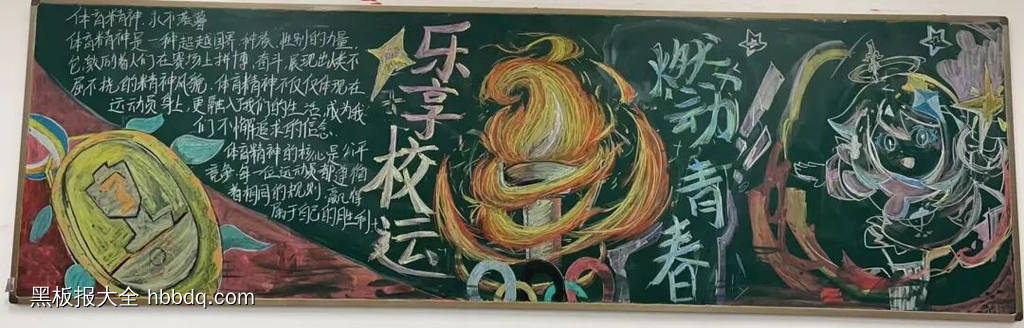 体育精神,永不凌辱
体育精神是一种超越国界、种族、性别的力量,
它激励着人们在赛场上拼搏、奋斗,展现出侠不
屈不挠的精神风貌。体育精神不仅仅体现在
运动员身上,更融入我们的生活,成为我
们不懈追求的信念。
体育精神的核心是公平
竞争,每一位运动员都遵循
着相同的规则,赢得
属于自己的胜利。
乐享校运
燃动青春
黑板报大全 hbbdq.com